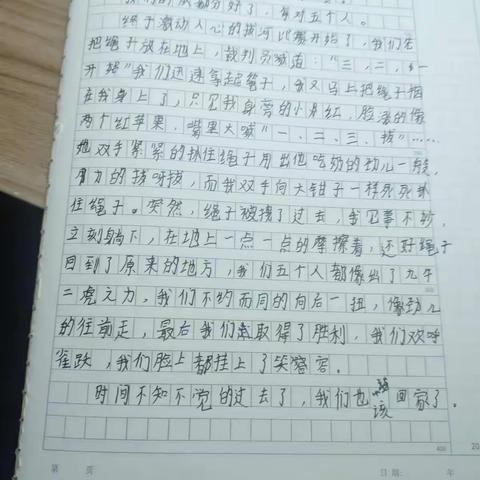 我们的队都分好了，每对五个人。
终于激动人心的拔河比赛开始了，我们先
把绳子放在地上，裁判员喊道："三、二、一
开始"我们迅速拿起绳子，我又马上把绳子捆
在我身上了，只见我身旁的小
脸涨的像
两个红苹果，嘴里大喊"一、二、三、拔"……
他双手紧紧的抓住绳子用出他吃奶的劲儿一般，
有力的拔呀拔，而我双手向大钳子一样死死抓
住绳子。突然，绳子被拽了过去，我见事不妙，
立刻躺下，在地上一点一点的摩擦着，还好绳子
回到了原来的地方，我们五个人都像出了九牛
二虎之力，我们不约而同的向后一扭，像劲儿
的往前走，最后我们取得了胜利，我们欢呼
雀跃，我们脸上都挂上了笑容。
时间不知不觉的过去了，我们也该回家了。
第 页
日期: 年